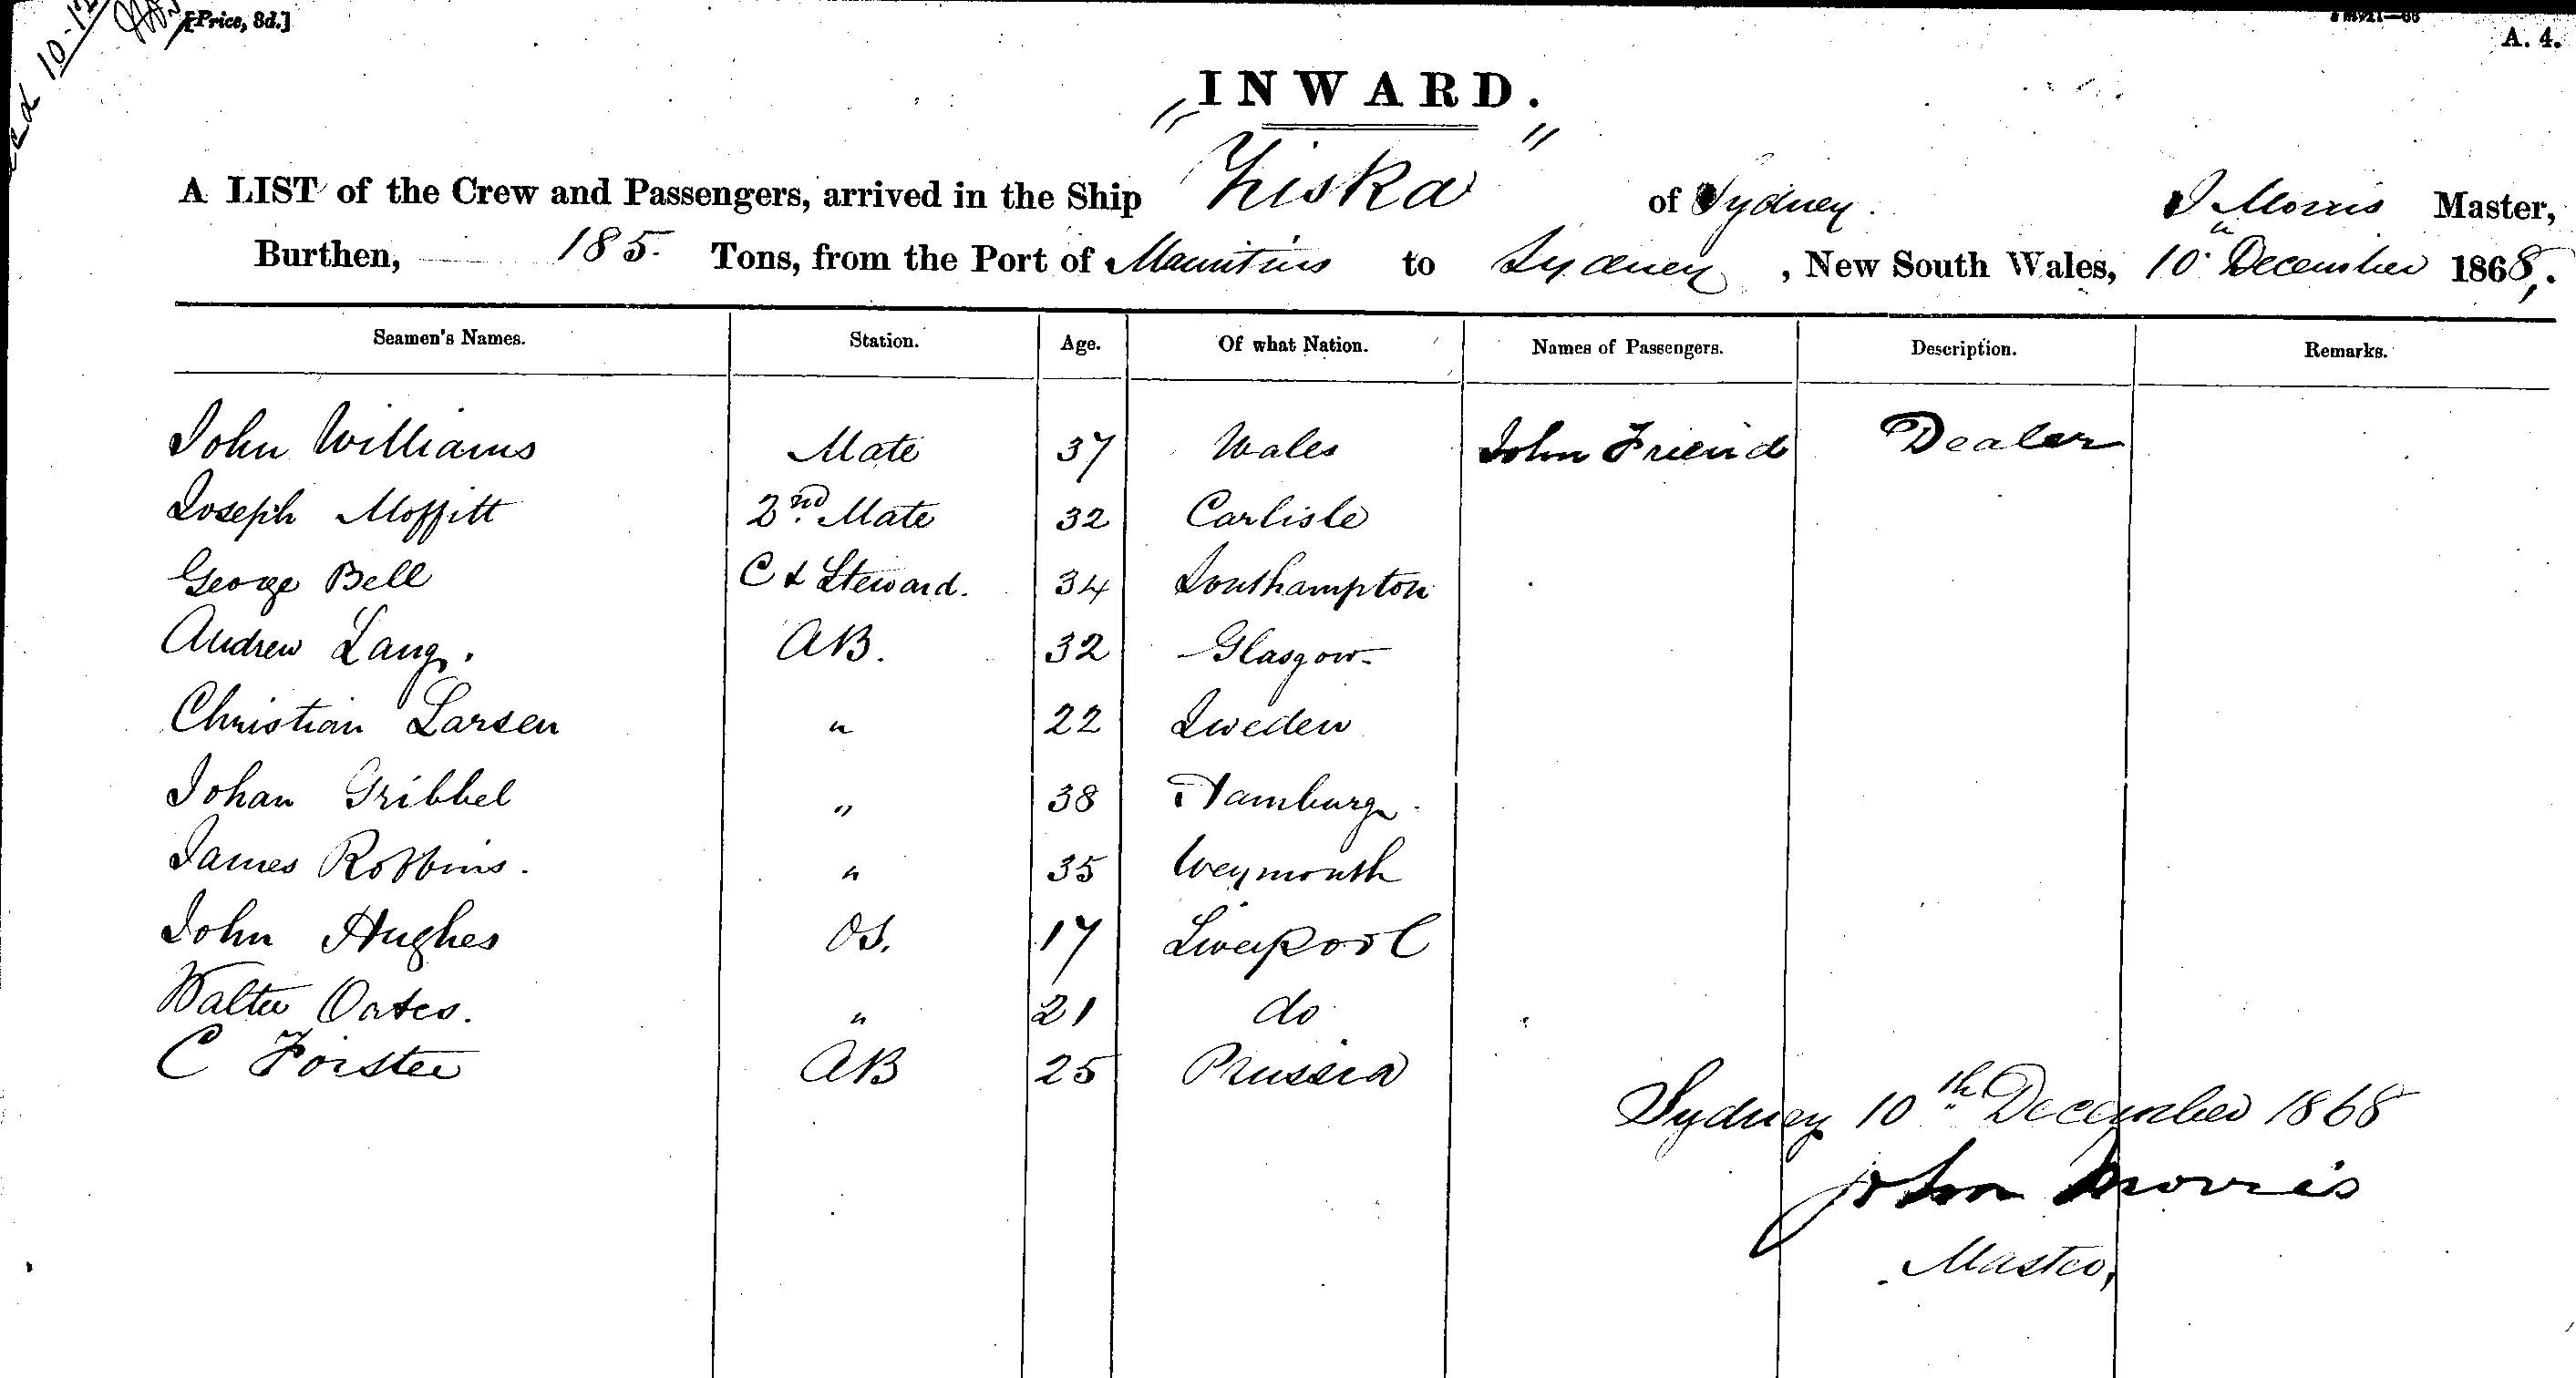 [Price, 8d.]
A. 4.
10-12
INWARD.
A LIST of the Crew and Passengers, arrived in the Ship "Ziska" of Sydney. J Morris Master,
Burthen, 185. Tons, from the Port of Mauritius to Sydney, New South Wales, 10" December 1868,.
Seamen's Names. Station. Age. Of what Nation. Names of Passengers. Description. Remarks.
John Williams Mate 37 Wales John Friend Dealer
Joseph Moffitt 2nd. Mate 32 Carlisle
George Bell C & Steward. 34 Southampton
Andrew Lang. AB. 32 Glasgow
Christian Larsen " 22 Sweden
Johan Gribbel " 38 Hamburg.
James Robbins. " 35 Weymouth
John Hughes OS. 17 Liverpool
Walter Oates. " 21 do
C Forster AB 25 Prussia
Sydney 10th December 1868
John Morris
Master,